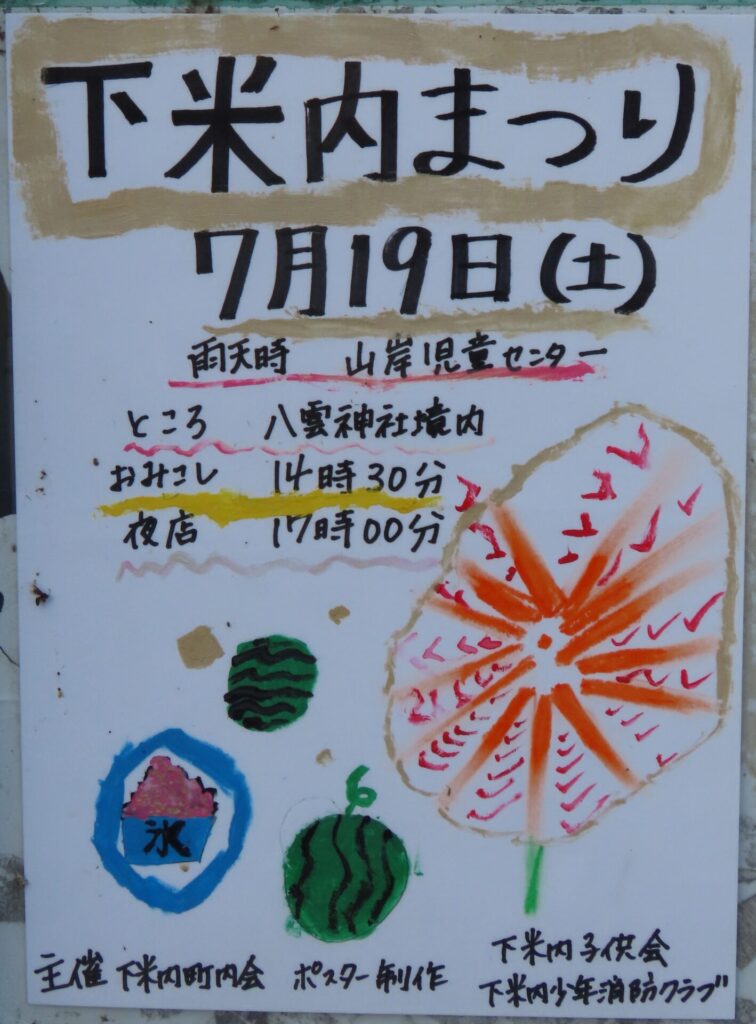 下米内まつり
7月19日(土)
雨天時 山岸児童センター
ところ 八雲神社境内
おみこし 14時30分
夜店 17時00分
氷
主催 下米内町内会 ポスター制作 下米内子供会
下米内少年消防クラブ